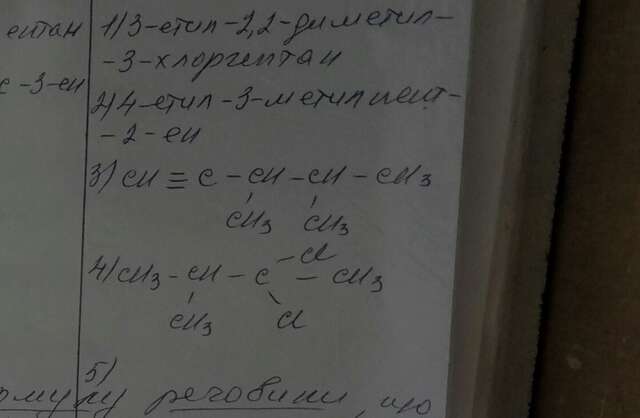 ентан
с-3-ен
1) 3-етил-2,2-диметил-
-3-хлоргептан
2) 4-етил-3-метилпент-
-2-ен
3) CH ≡ C - CH - CH - CH3
CH3 CH3
Cl
4) CH3 - CH - C - CH3
CH3 Cl
5)
рмулу речовини, що